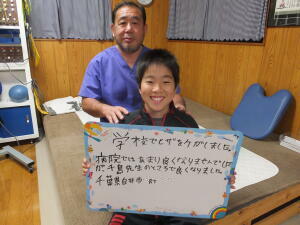 学校でヒザをケガしました。
病院ではあまり良くなりませんでした
が千島先生のところで良くなりました。
千葉県白井市 R.T